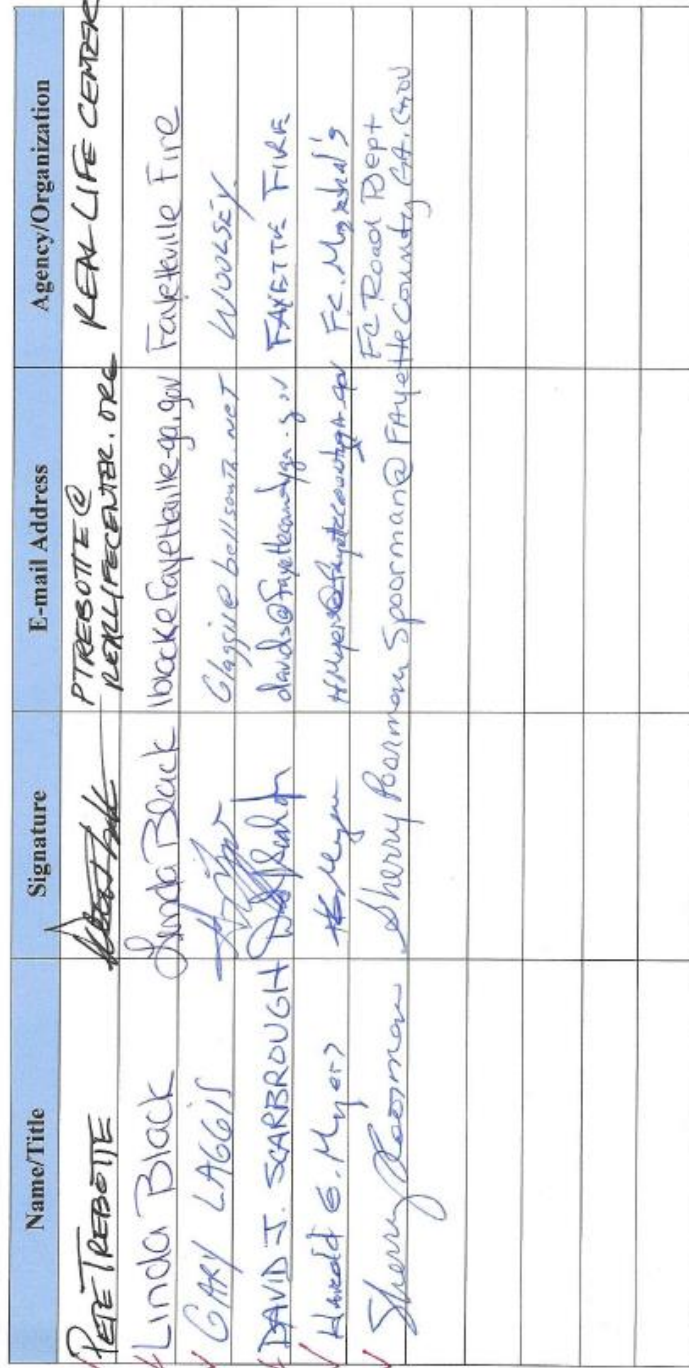 Name/Title Signature E-mail Address Agency/Organization
PETE TREBOTTE PTREBOTTE@ REALLIFECENTER.ORG REAL LIFE CENTER
Linda Black Linda Black lblack@fayetteville-ga.gov Fayetteville Fire
GARY LAGGIS Glaggis@bellsouth.net WOOLSEY
DAVID J. SCARBROUGH davids@fayettecountyga.gov FAYETTE FIRE
Harold E. Myers HMyers@fayettecountyga.gov F.C. Marshal's
Sherry Poorman Sherry Poorman Spoorman@FAyetteCountyGA.Gov FC Road Dept